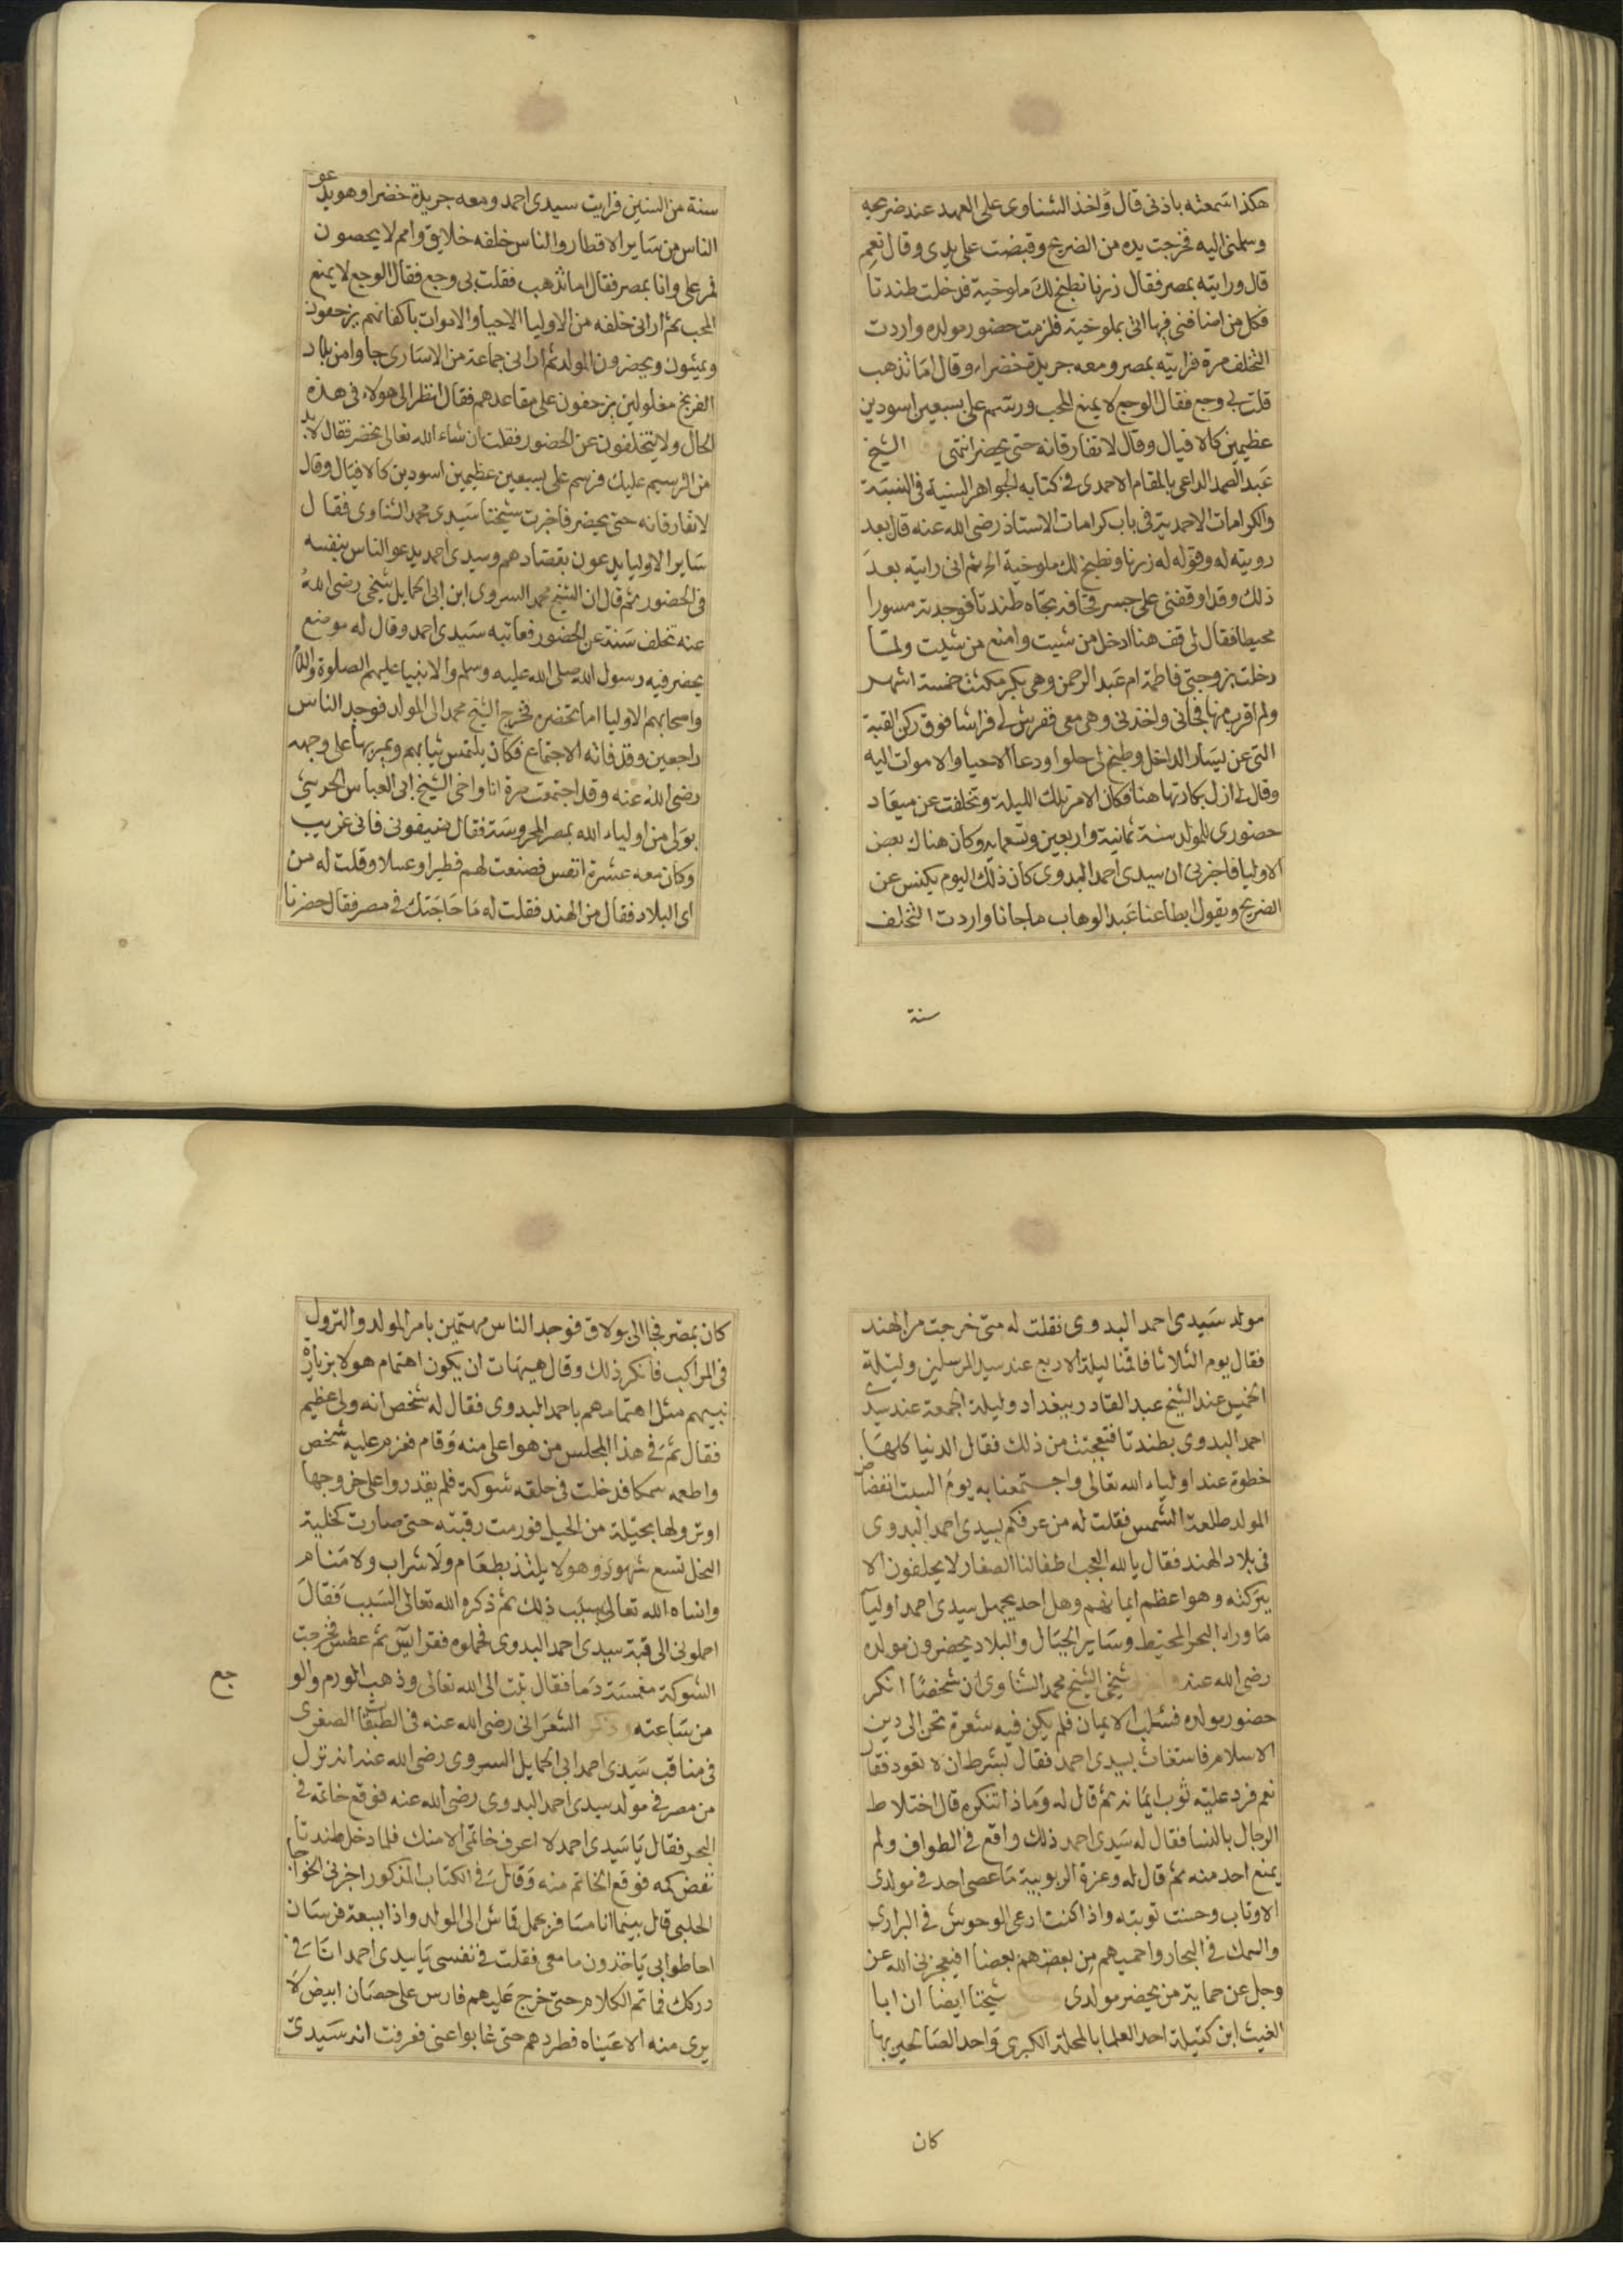 هكذا سمعته باذنى قال واخذ الشناوى على العهد عند ضريحه
وسلمنى اليه فخرجت يده من الضريح وقبضت على يدى وقال نعم
قال ورايته بمصر فقال زرنا نطبخ لك ملوخية فدخلت طندتا
فكل من اضافنى فيها اتى بملوخية فلزمت حضور مولده واردت
التخلف مرة فرايته بمصر ومعه جريدة خضراء وقال اما تذهب
قلت بى وجع فقال الوجع لا يمنع المحب ورسم على بسبعين اسودين
عظيمين كالافيال وقال لا تفارقانه حتى يحضر انتهى وقال الشيخ
عبد الصمد الداعى بالمقام الاحمدى فى كتابه الجواهر السنية فى النسبة
والكرامات الاحمدية فى باب كرامات الاستاذ رضى الله عنه قال بعد
رويته له وقوله له زرنا ونطبخ لك ملوخية الخ ثم انى رايته بعد
ذلك وقد اوقفنى على جسر قحافه تجاه طندتا فوجدته مسورا
محيطا فقال لى قف هنا ادخل من شيت وامنع من شيت ولما
دخلت بزوجتى فاطمة ام عبد الرحمن وهى بكر مكثت خمسة اشهر
ولم اقرب منها فجانى واخذنى وهى معى ففرش لى فراشا فوق ركن القبة
التى عن يسار الداخل وطبخ لى حلوا ودعا الاحيا والاموات اليه
وقال لى ازل بكارتها هنا فكان الامر تلك الليلة وتخلفت عن ميعاد
حضورى للمولد سنة ثمانية واربعين وتسعماية وكان هناك بعض
الاوليا فاخبرنى ان سيدى احمد البدوى كان ذلك اليوم يكنس عن
الضريح ويقول ابطا عنا عبد الوهاب ما جانا واردت التخلف
سنة
سنة من السنين فرايت سيدى احمد ومعه جريدة خضرا وهو يدعو
الناس من ساير الاقطار والناس خلفه خلايق وامم لا يحصون
فمر على وانا بمصر فقال اما تذهب فقلت بى وجع فقال الوجع لا يمنع
المحب ثم ارانى خلفه من الاوليا الاحيا والاموات باكفانهم يزحفون
ويمشون ويحضرون المولد ثم ارانى جماعة من الاسارى جاوا من بلاد
الفرنج مغلولين يزحفون على مقاعدهم فقال انظر الى هولاء فى هذه
الحال ولا يتخلفون عن الحضور فقلت ان شاء الله تعالى نحضر فقال لا بد
من الترسيم عليك فرسم على بسبعين عظيمين اسودين كالافيال وقال
لا تفارقانه حتى يحضر فاخبرت شيخنا سيدى محمد الشناوى فقال
ساير الاوليا يدعون بقصادهم وسيدى احمد يدعو الناس بنفسه
فى الحضور ثم قال ان الشيخ محمد السروى ابن ابى الحمايل شيخى رضى الله
عنه تخلف سنة عن الحضور فعاتبه سيدى احمد وقال له موضع
يحضر فيه رسول الله صلى الله عليه وسلم والانبيا عليهم الصلوة والسلام
واصحابهم الاوليا اما تحضره فخرج الشيخ محمد الى المولد فوجد الناس
راجعين وقد فاته الاجتماع فكان يلتمس ثيابهم ويمر بها على وجهه
رضى الله عنه وقد اجتمعت مرة انا واخى الشيخ ابى العباس الحريثى
بولى من اولياء الله بمصر المحروسة فقال ضيفونى فانى غريب
وكان معه عشرة انفس فصنعت لهم فطيرا وعسلا وقلت له من
اى البلاد فقال من الهند فقلت له ما حاجتك فى مصر فقال حضرنا
مولد سيدى احمد البدوى فقلت له متى خرجت من الهند
فقال يوم الثلاثا فاقمنا ليلة الاربع عند سيد المرسلين وليلة
الخميس عند الشيخ عبد القادر ببغداد وليلة الجمعة عند سيدى
احمد البدوى بطندتا فتعجبت من ذلك فقال الدنيا كلها
خطوة عند اولياء الله تعالى واجتمعنا به يوم السبت انفضاض
المولد طلعة الشمس فقلت له من عرفكم بسيدى احمد البدوى
فى بلاد الهند فقال يا لله العجب اطفالنا الصغار لا يحلفون الا
ببركته وهو اعظم ايمانهم وهل احد يجهل سيدى احمد اوليا
ما وراء البحر المحيط وساير الجبال والبلاد يحضرون مولده
رضى الله عنه واخبرنى شيخى الشيخ محمد الشناوى ان شخصا انكر
حضور مولده فسلب الايمان فلم يكن فيه شعرة تحن الى دين
الاسلام فاستغاث بسيدى احمد فقال بشرط ان لا تعود فقال
نعم فرد عليه ثوب ايمانه ثم قال له وماذا تنكره قال اختلاط
الرجال بالنسا فقال له سيدى احمد ذلك واقع فى الطواف ولم
يمنع احد منه ثم قال له وعزة الربوبية ما عصى احد فى مولدى
الا وتاب وحسنت توبته واذا كنت ارعى الوحوش فى البرارى
والسمك فى البحار واحميهم من بعضهم بعضا افيعجزنى الله عز
وجل عن حماية من يحضر مولدى شيخنا ايضا ان ابا
الغيث ابن كتيلة احد العلما بالمحلة الكبرى واحد الصالحين بها
كان
كان بمصر فجا الى بولاق فوجد الناس مهتمين بامر المولد والنزول
فى المراكب فانكر ذلك وقال هيهات ان يكون اهتمام هولا بزيارة
نبيهم مثل اهتمامهم باحمد البدوى فقال له شخص انه ولى عظيم
فقال ثم فى هذا المجلس من هو اعلى منه وقام فعزم عليه شخص
واطعمه سمكا فدخلت فى حلقه شوكة فلم يقدروا على خروجها
او نزولها بحيلة من الحيل فورمت رقبته حتى صارت كخلية
النحل تسع شهور وهو لا يلتذ بطعام ولا شراب ولا منام
وانساه الله تعالى سبب ذلك ثم ذكره الله تعالى السبب فقال
احملونى الى قبة سيدى احمد البدوى فحملوه فقرا يس ثم عطس فخرجت
الشوكة مغمسة دما فقال تبت الى الله تعالى وذهب الورم والوجع
من ساعته وذكر الشعرانى رضى الله عنه فى الطبقات الصغرى
فى مناقب سيدى احمد ابى الحمايل السروى رضى الله عنه انه نزل
من مصر فى مولد سيدى احمد البدوى رضى الله عنه فوقع خاتمه فى
البحر فقال يا سيدى احمد لا اعرف خاتمى الا منك فلما دخل طندتا
نفض كمه فوقع الخاتم منه وقال فى الكتاب المذكور اخبرنى الخواجا
الحلبى قال بينما انا مسافر بحمل قماش الى المولد واذا بسبعة فرسان
احاطوا بى ياخذون ما معى فقلت فى نفسى يا سيدى احمد انا فى
دركك فما تم الكلام حتى خرج عليهم فارس على حصان ابيض لا
يرى منه الا عيناه فطردهم حتى غابوا عنى فعرفت انه سيدى